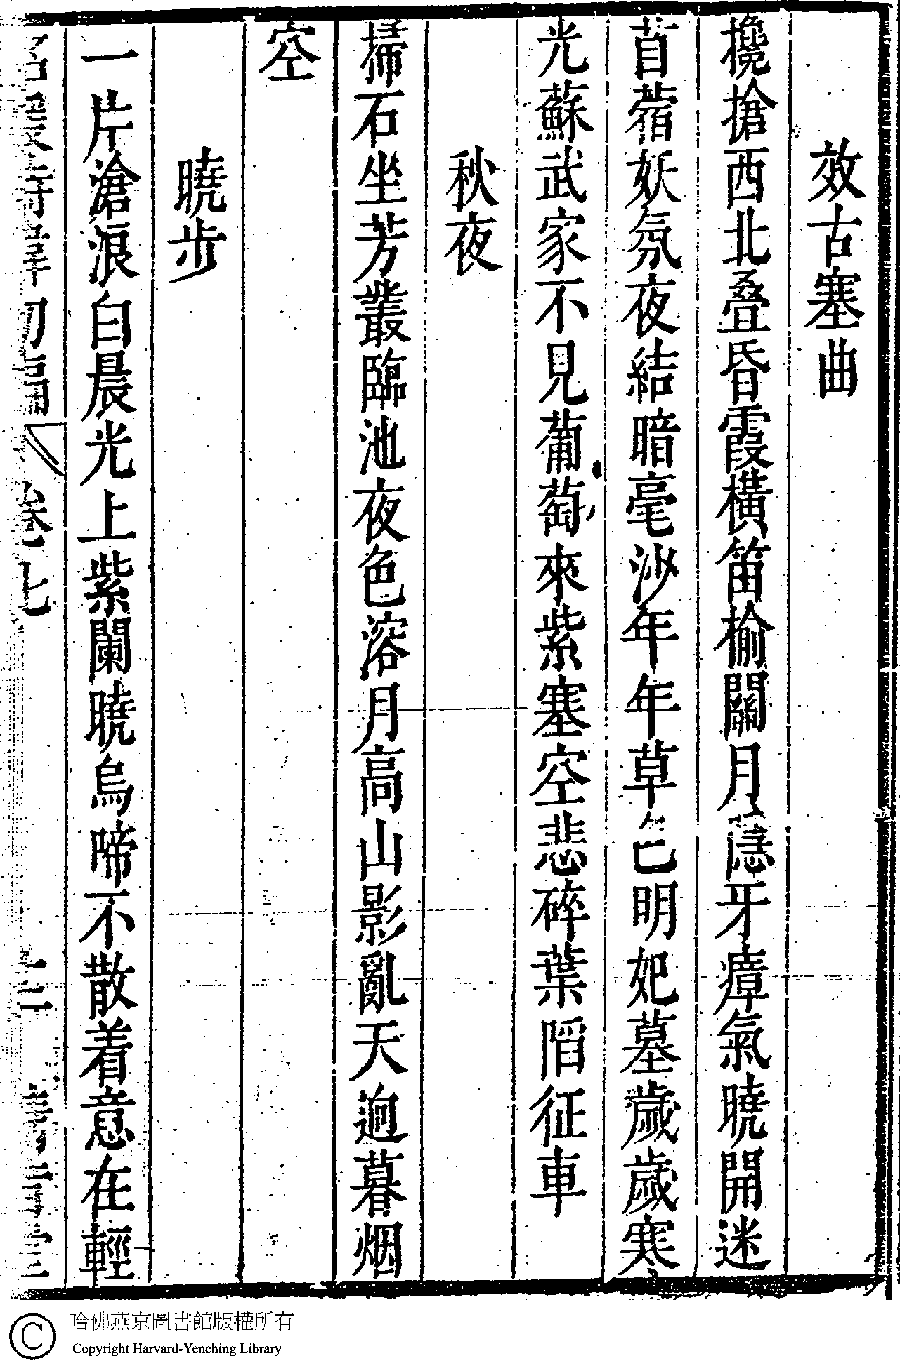 效古塞曲
欃搶西北叠昏霞橫笛榆關月隱牙瘴氣曉開迷
苜蓿妖氛夜結暗毫沙年年草色明妃墓歲歲寒
光蘇武家不見葡萄來紫塞空悲碎葉陷征車
秋夜
掃石坐芳叢臨池夜色溶月高山影亂天逈暮烟
空
曉步
一片滄浪白晨光上紫闌曉烏啼不散着意在輕
初編 卷七
哈佛燕京圖書館版權所有
Copyright Harvard-Yenching Library